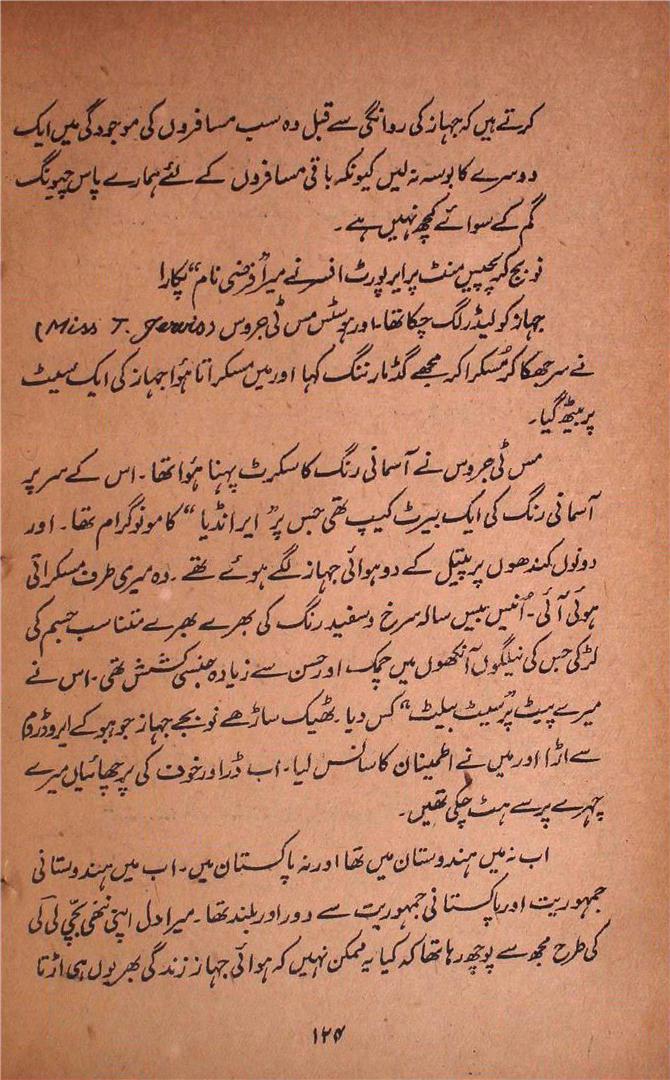 کرتے ہیں کہ جہاز کی روانگی سے قبل وہ سب مسافروں کی موجودگی میں ایک
دوسرے کا بوسہ نہ لیں کیونکہ باقی مسافروں کے لئے ہمارے پاس چیونگ
گم کے سوائے کچھ نہیں ہے۔
نو بج کر پچپیس منٹ پر ایرپورٹ افسر نے میرا ”فرضی نام“ پکارا
جہاز کو لیڈر لگ چکا تھا۔ اور ہوسٹس مس ٹی جروس (Miss T. Jervis)
نے سر جھکا کر مسکرا کر مجھے گڈ مارننگ کہا اور میں مسکراتا ہؤا جہاز کی ایک سیٹ
پر بیٹھ گیا۔
مس ٹی جروس نے آسمانی رنگ کا سکرٹ پہنا ہؤا تھا۔ اس کے سر پر
آسمانی رنگ کی ایک بیرٹ کیپ تھی جس پر ”ایر انڈیا“ کا مونوگرام تھا۔ اور
دونوں کندھوں پر پیتل کے دو ہوائی جہاز لگے ہوئے تھے۔ وہ میری طرف مسکراتی
ہوئی آئی۔ اُنیس بیس سالہ سرخ و سفید رنگ کی بھرے بھرے متناسب جسم کی
لڑکی جس کی نیلگوں آنکھوں میں چمک اور حسن سے زیادہ جنسی کشش تھی۔ اس نے
میرے پیٹ پر ”سیٹ بیلٹ“ کس دیا۔ ٹھیک ساڑھے نو بجے جہاز جوہو کے ایروڈروم
سے اڑا اور میں نے اطمینان کا سانس لیا۔ اب ڈر اور خوف کی پرچھائیاں میرے
چہرے پر سے ہٹ چکی تھیں۔
اب نہ میں ہندوستان میں تھا اور نہ پاکستان میں۔ اب میں ہندوستانی
جمہوریت اور پاکستانی جمہوریت سے دور اور بلند تھا۔ میرا دل اپنی ننھی بچی لی لی
کی طرح مجھ سے پوچھ رہا تھا کہ کیا یہ ممکن نہیں کہ ہوائی جہاز زندگی بھر یوں ہی اڑتا